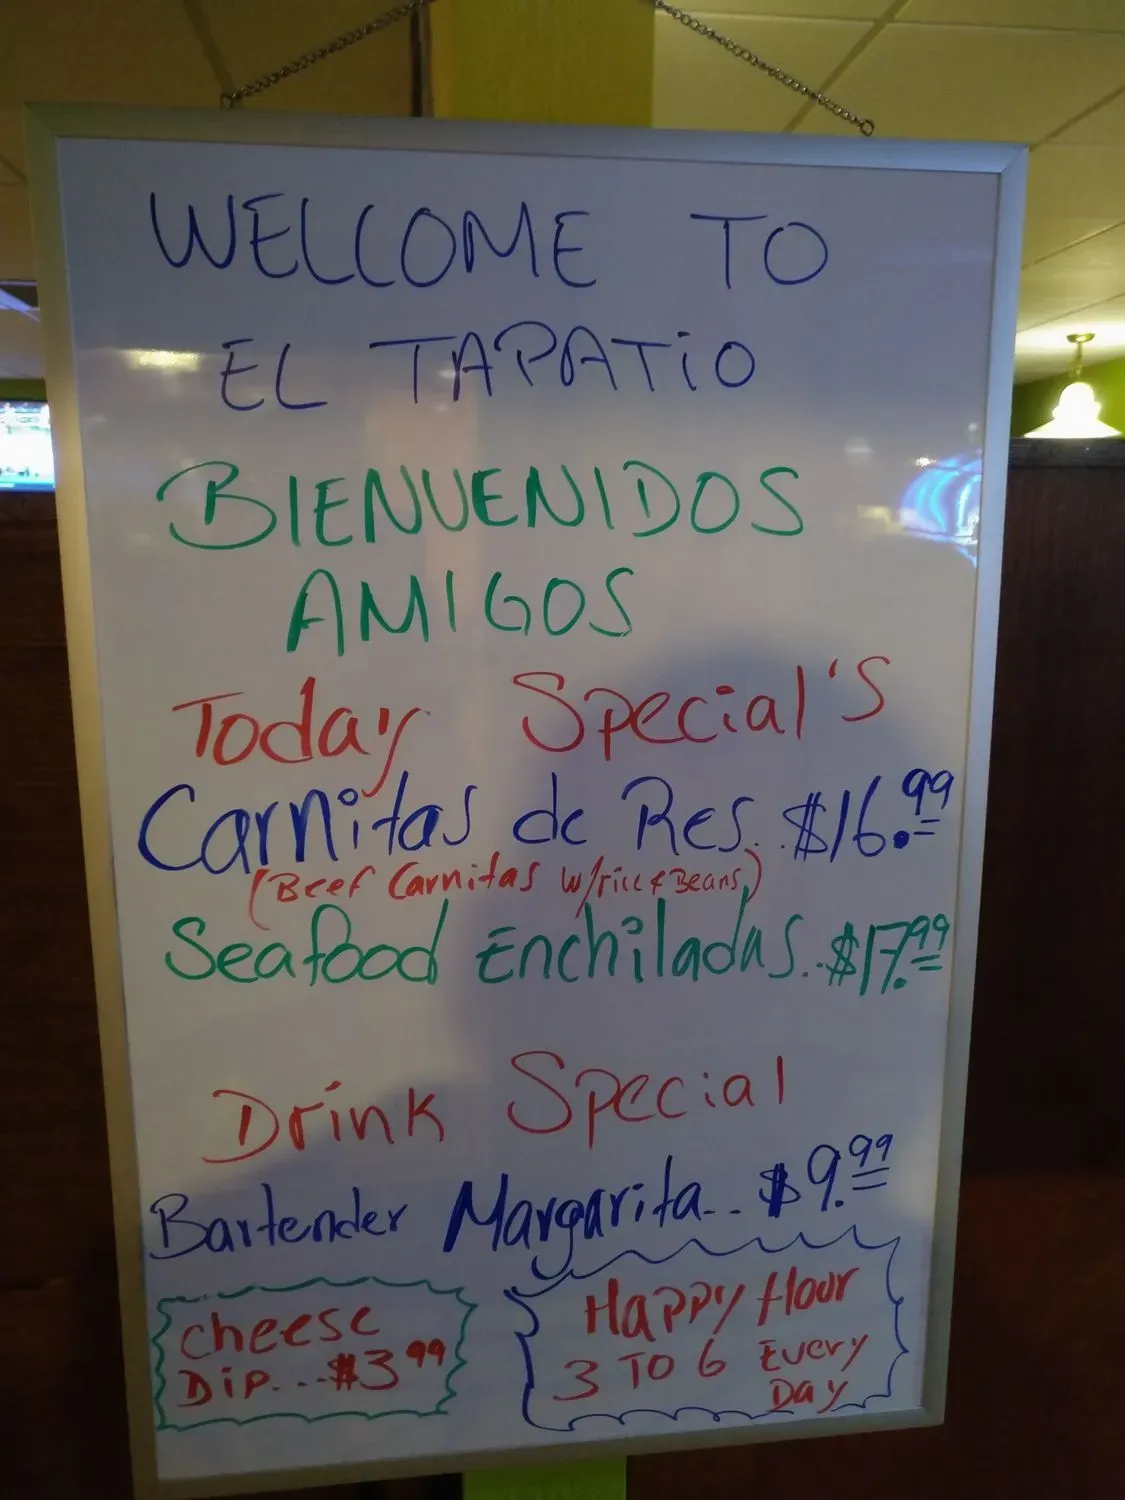 WELCOME TO
EL TAPATiO
BIENVENIDOS
AMIGOS
Today Special's
Carnitas de Res.. $16.99
(Beef Carnitas w/rice & Beans)
Seafood Enchiladas.. $17.99
Drink Special
Bartender Margarita.. $9.99
Cheese
Dip....$3.99
Happy Hour
3 TO 6 Every
Day